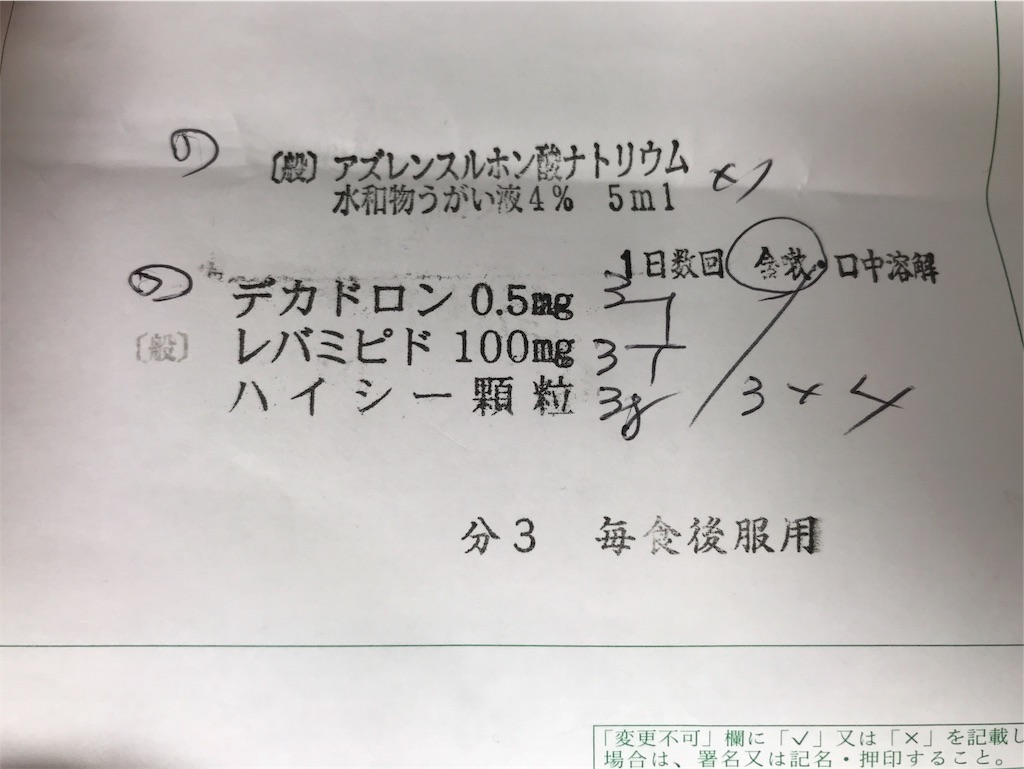 〔般〕アズレンスルホン酸ナトリウム ×1
水和物うがい液4% 5ml
1日数回 含嗽・口中溶解
デカドロン 0.5mg 3T
〔般〕 レバミピド 100mg 3T
ハイシー顆粒 3g 3×4
分3 毎食後服用
「変更不可」欄に「✓」又は「×」を記載し
場合は、署名又は記名・押印すること。